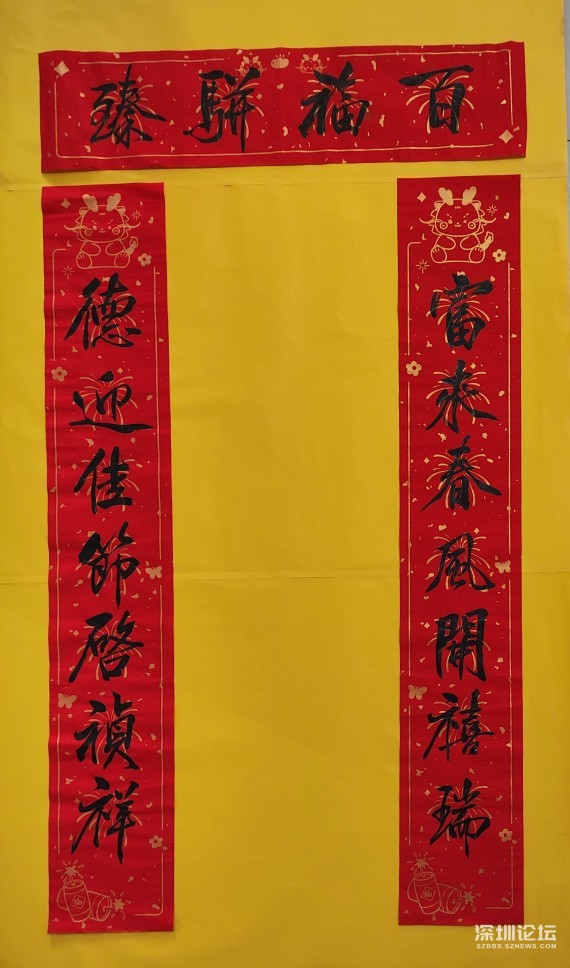 百福駢臻
富来春風開禧瑞
德迎佳節啓禎祥
深圳论坛
SZBBS.SZNEWS.COM